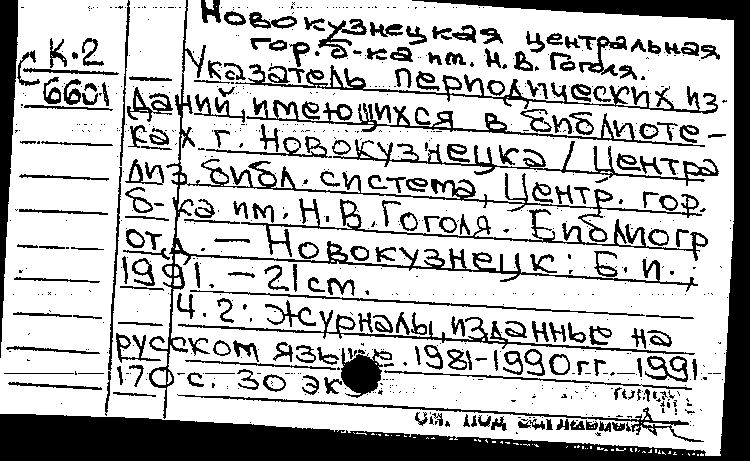 Новокузнецкая центральная
гор. б-ка им. Н.В. Гоголя.
К.2
С 6601
Указатель периодических из-
даний, имеющихся в библиоте-
ках г. Новокузнецка / Центра
лиз. библ. система, Центр. гор.
б-ка им. Н.В. Гоголя. Библиогр
отд. — Новокузнецк: Б.и.,
1991. — 21 см.
Ч.2: Журналы, изданные на
русском языке. 1981-1990 гг. 1991.
170 с. 30 эк
см. под заглавием